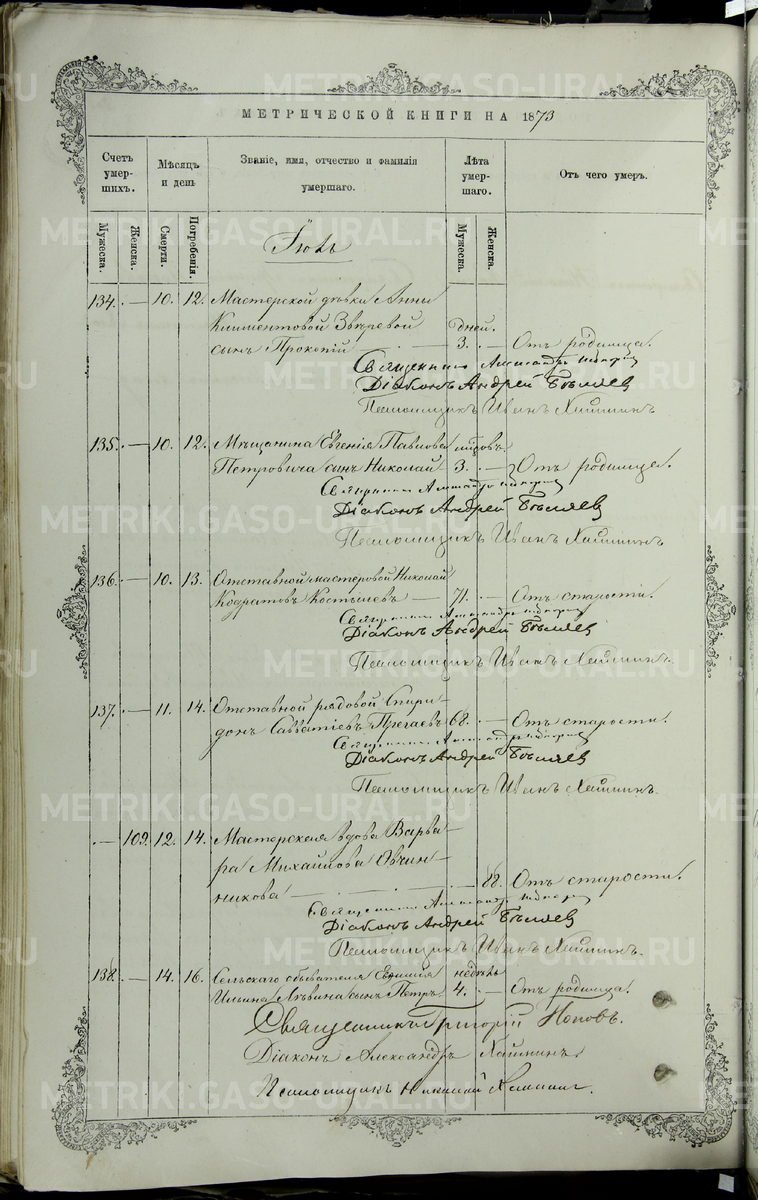 МЕТРИЧЕСКОЙ КНИГИ НА 1873
Счетъ умершихъ.
Мѣсяцъ и день
Званіе, имя, отчество и фамилія умершаго.
Лѣта умершаго.
Отъ чего умеръ.
Мужеска. Женска. Смерти. Погребенія. Мужеска. Женска.
Іюль
134. — 10. 12. Мастерской дѣвки Анны
Климентовой Звѣревой дней.
сынъ Прокопій — 3. — Отъ родимца.
Священникъ Александръ
Діаконъ Андрей Бѣляев
Псаломщикъ Иванъ Хлынинъ
135. — 10. 12. Мѣщанина Евгенія Павлова
Петровича сынъ Николай 3. — Отъ родимца.
Священникъ Александръ
Діаконъ Андрей Бѣляев
Псаломщикъ Иванъ Хлынинъ
136. — 10. 13. Отставной мастеровой Николай
Кодратовъ Костылевъ — 71. — Отъ старости.
Священникъ Александръ
Діаконъ Андрей Бѣляев
Псаломщикъ Иванъ Хлынинъ.
137. — 11. 14. Отставной рядовой Спири-
донъ Савватіевъ 68. — Отъ старости.
Священникъ Александръ
Діаконъ Андрей Бѣляев
Псаломщикъ Иванъ Хлынинъ.
— 109. 12. 14. Мастерская вдова Варва-
ра Михайлова Овчин-
никова — 88. Отъ старости.
Священникъ Александръ
Діаконъ Андрей Бѣляев
Псаломщикъ Иванъ Хлынинъ.
138. — 14. 16. Сельскаго обывателя недѣль
Ильина сынъ Петръ 4. — Отъ родимца.
Священникъ Григорій Поповъ.
Діаконъ Александръ Хлынинъ
Псаломщикъ Николай
METRIKI.GASO-URAL.RU